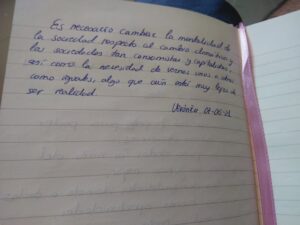 Es necesario cambiar la mentalidad de
la sociedad respecto al cambio climático y
las sociedades tan consumistas y capitalistas
así como la necesidad de vernos unos a otros
como iguales, algo que aún está muy lejos de
ser realidad.
Verónica 07-06-21